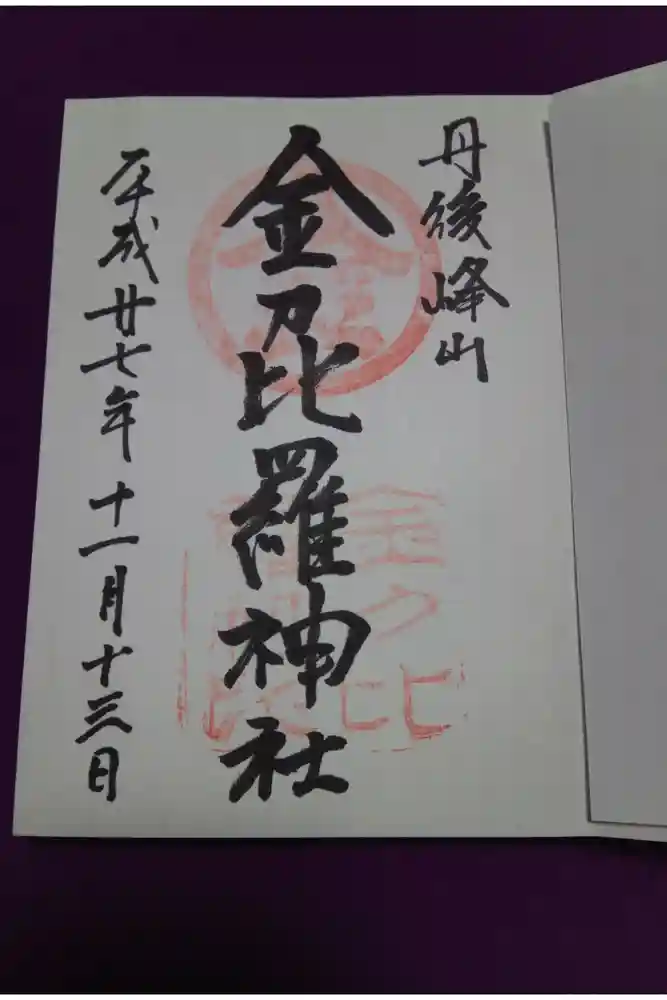 丹後峰山
金刀毘羅神社
平成廿七年十一月十三日